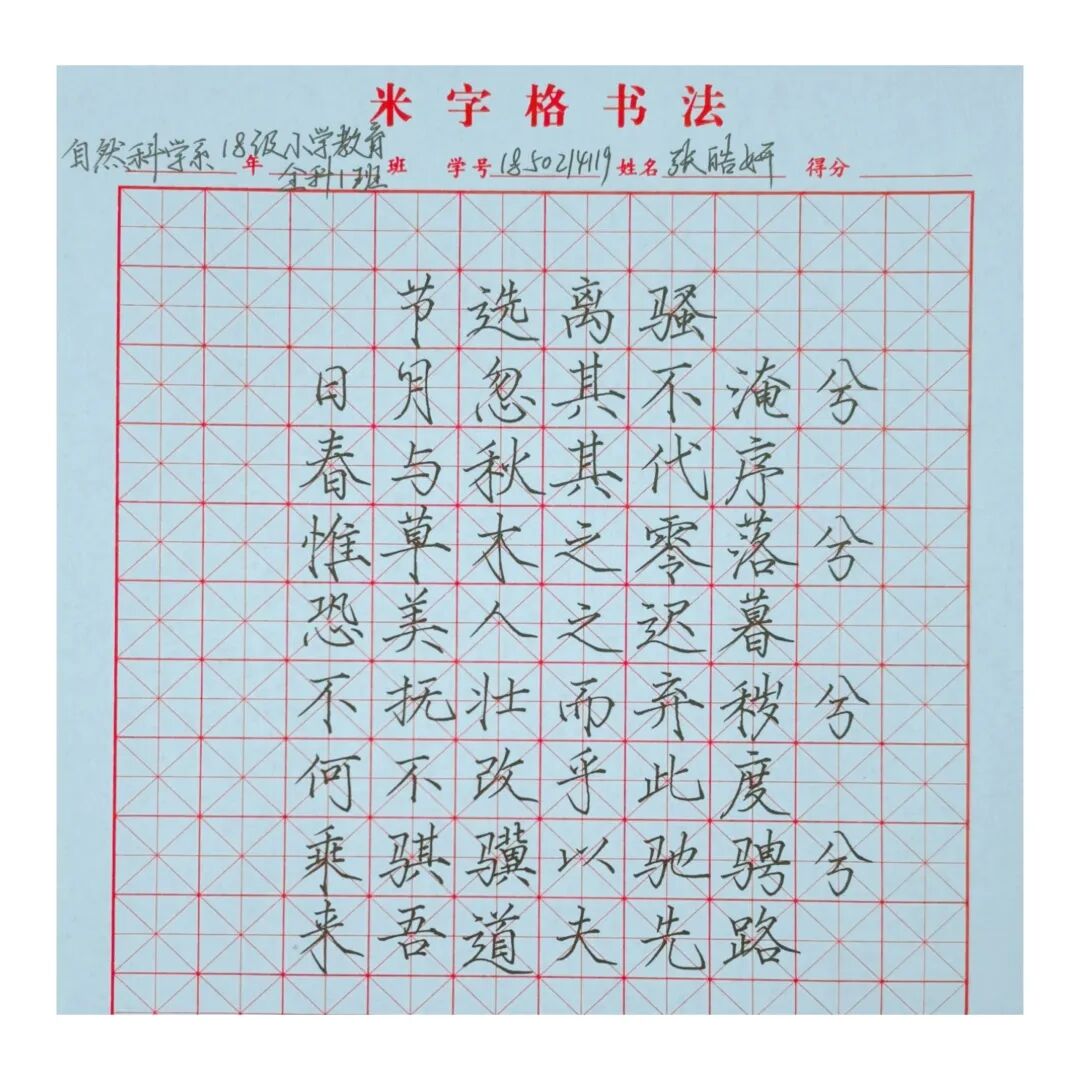 米字格书法
自然科学系 18级小学教育
年 全科1班 班 学号 1850214119 姓名 张皓妍 得分
节选离骚
日月忽其不淹兮
春与秋其代序
惟草木之零落兮
恐美人之迟暮
不抚壮而弃秽兮
何不改乎此度
乘骐骥以驰骋兮
来吾道夫先路